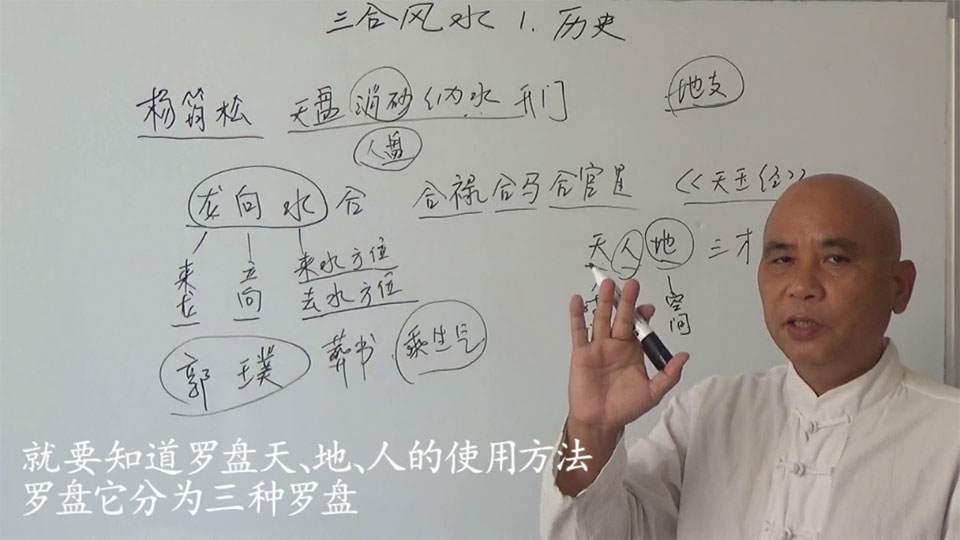 三合风水 1.历史
杨筠松 天盘消砂纳水 开门 地支
人盘
龙向水 合 合禄合马合官星 《天玉经》
天人地 三才
来龙 立向 来水方位 空间
去水方位
郭璞 葬书 乘生气
就要知道罗盘天、地、人的使用方法
罗盘它分为三种罗盘